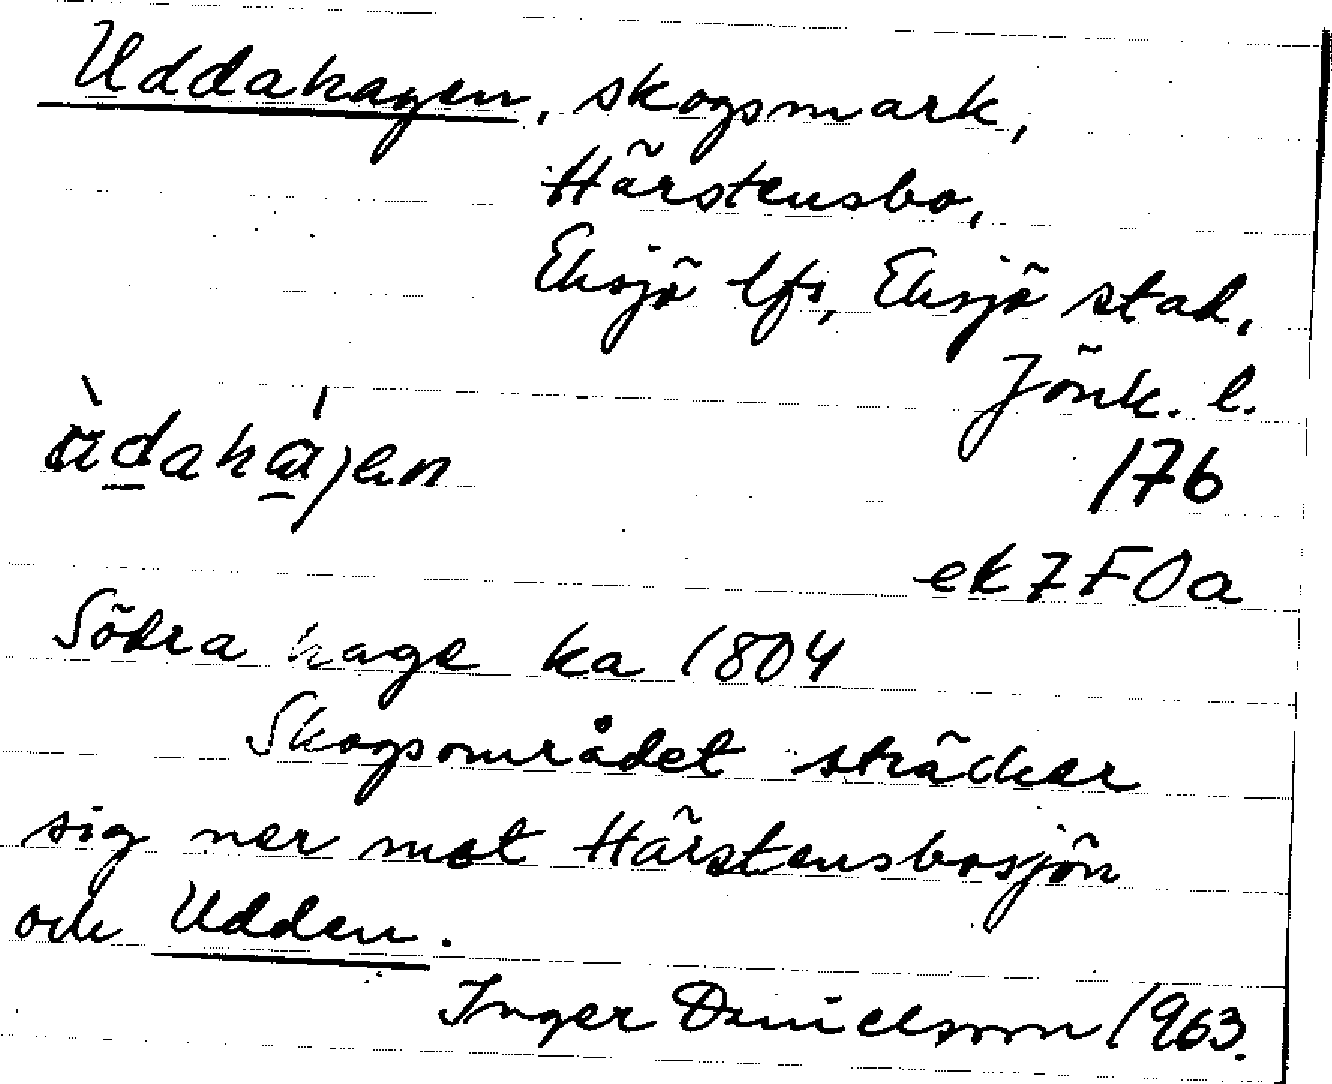 Uddahagen, skogsmark,
Härstensbo,
Eksjö lfs, Eksjö stad,
Jönk. l.
176
ek 7 F 0 a
Södra hage ka 1804
Skogsområdet sträcker
sig ner mot Härstensbosjön
och Udden.
Inger Danielsson 1963.